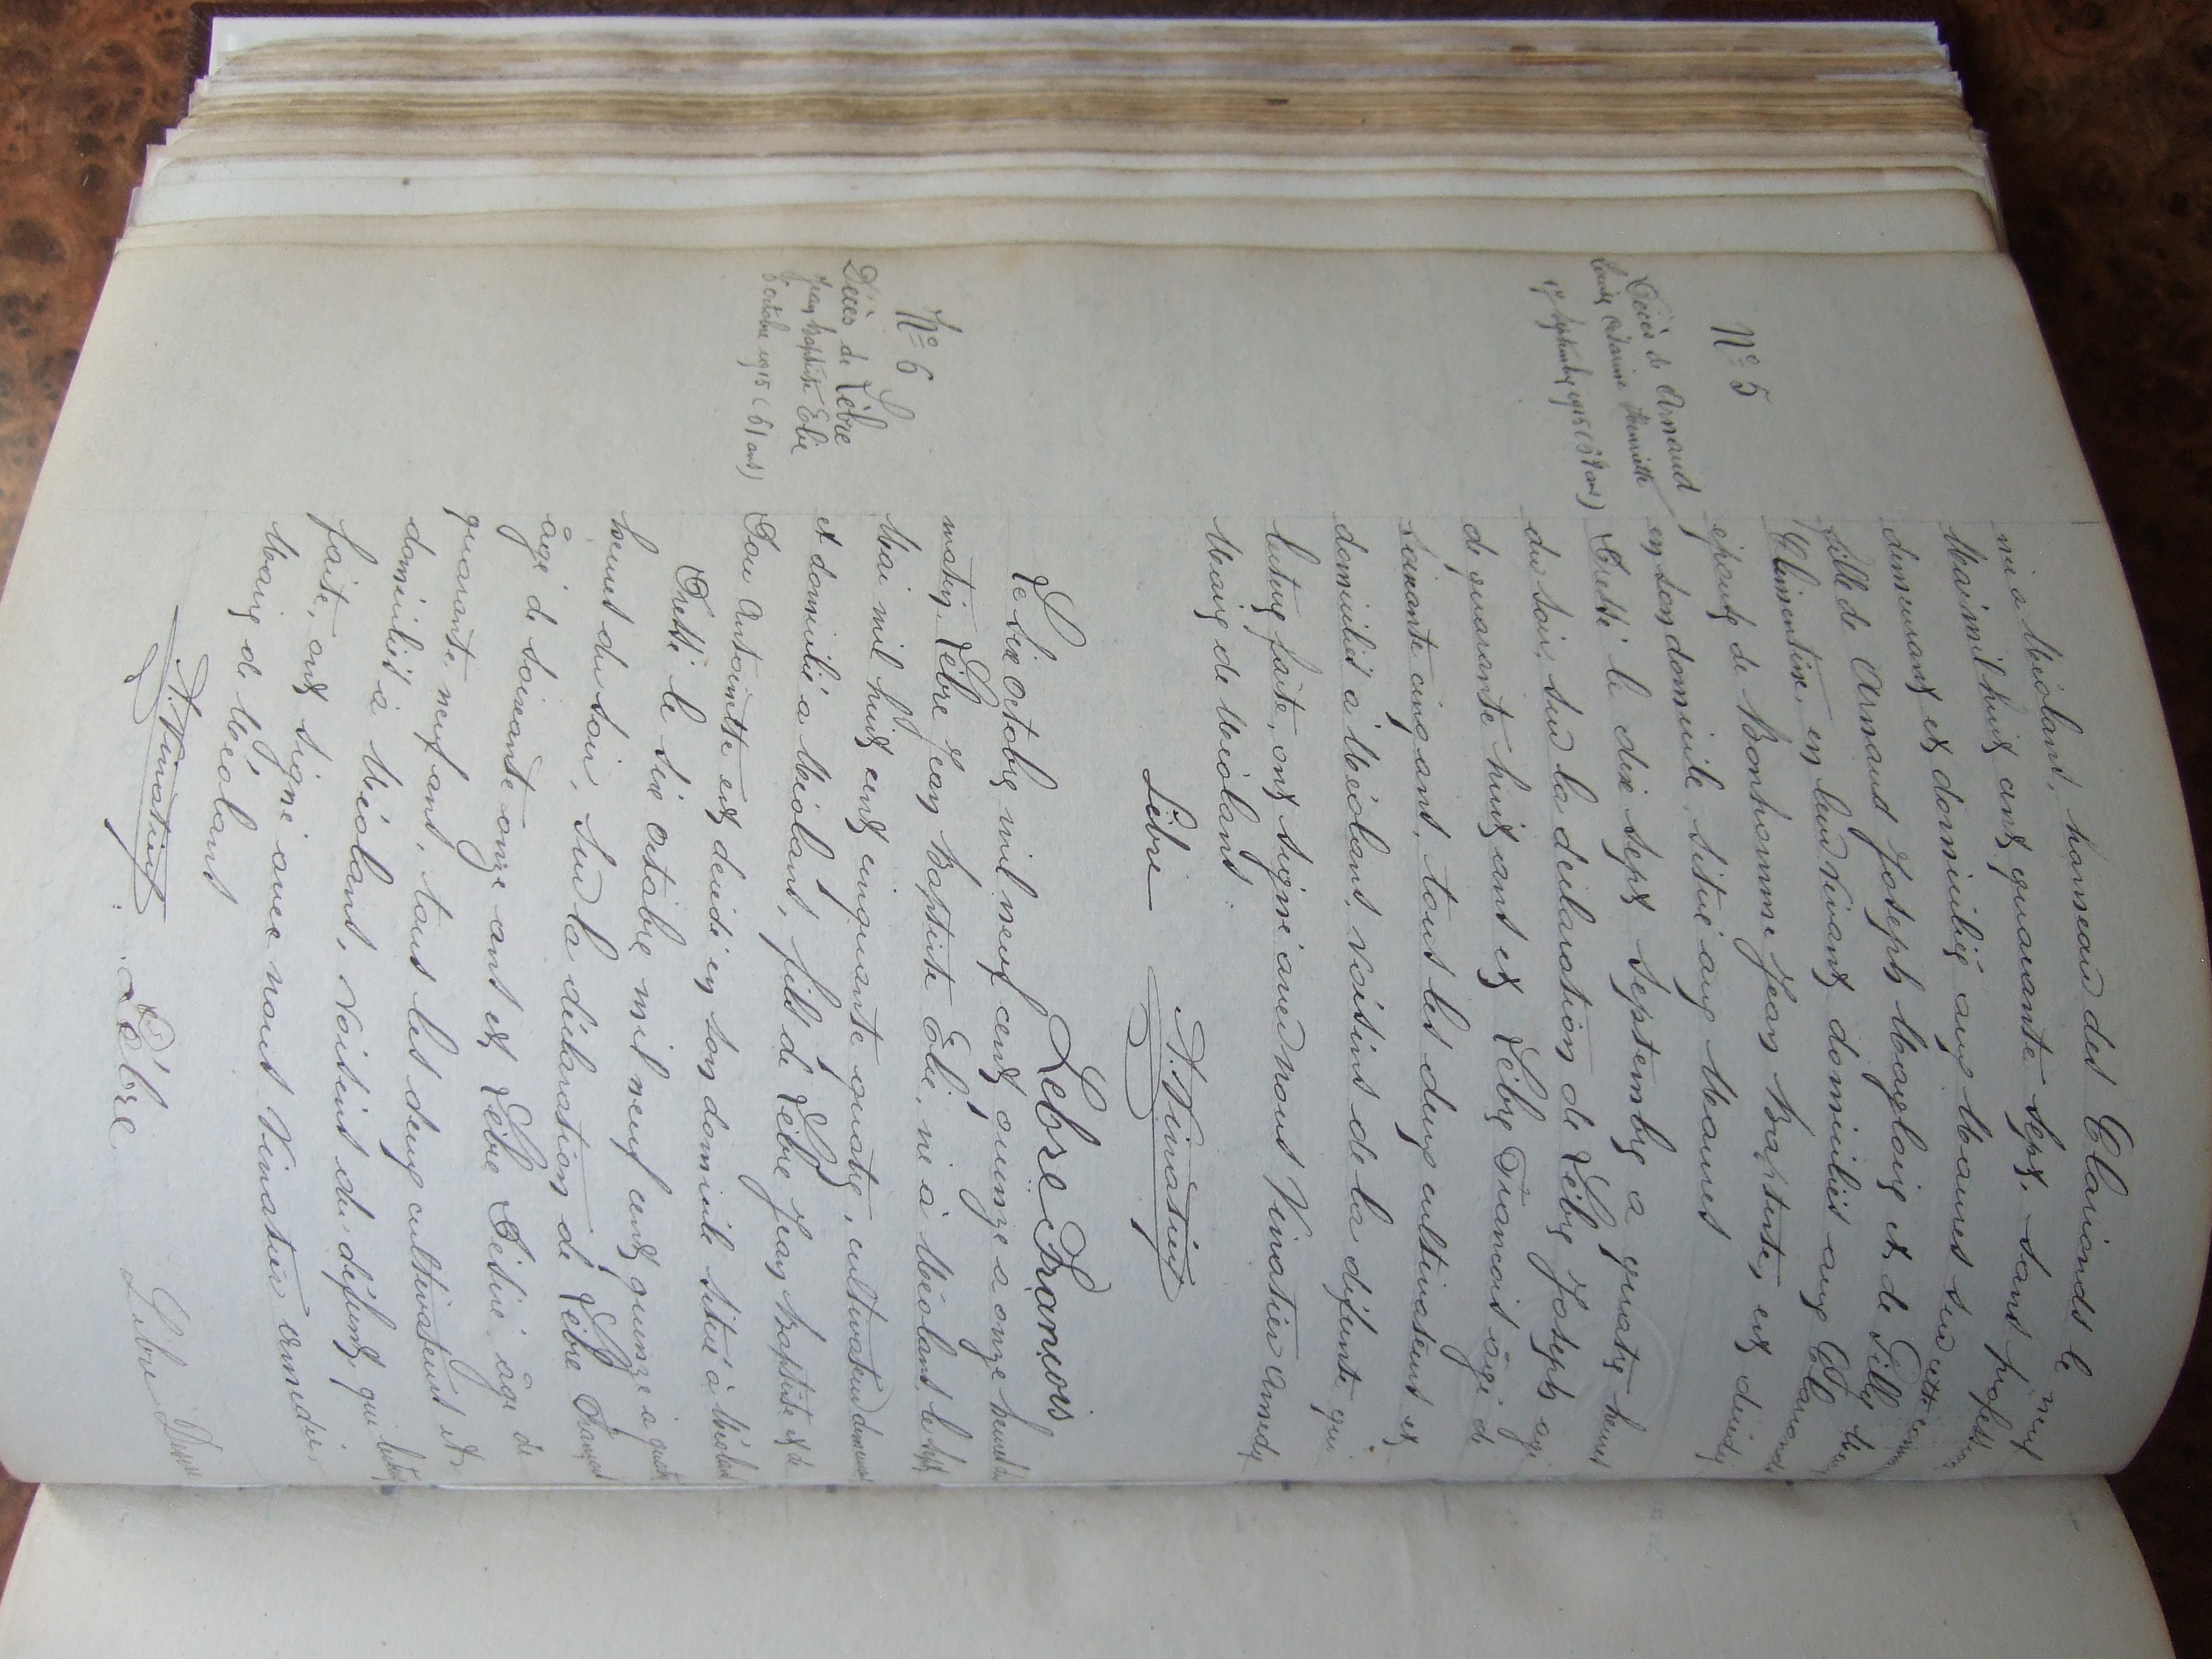 né à Méolans, hameau des Clarionds le neuf
Mai mil huit cent quarante sept. sans profession
demeurant et domiciliée aux Maures sur cette com
fille de Arnaud Joseph Magloire et de Tilly
Clémentine, en leur vivant domiciliés aux Clarionds
épouse de Bonhomme Jean Baptiste, est décédée
en son domicile, situé aux Maures
Dressé le dix sept septembre a quatre heures
du soir, sur la déclaration de Lèbre Joseph agé
de quarante huit ans et Lèbre Francois agé de
soixante cinq ans, tous les deux cultivateurs et
domiciliés à Méolans, voisins de la défunte qui
lecture faite, ont signé avec nous Vinatier Amédé
Maire de Méolans.
Nº 5
Décès de Arnaud
17 septembre 1915
Lèbre A. Vinatier Lebre Francois
Nº 6
Décès de Lèbre
Jean Baptiste Elie
octobre 1915 (61 ans)
Le six octobre mil neuf cent quinze a onze heures du
matin. Lèbre Jean Baptiste Elie, né à Méolans le sept
Mai mil huit cent cinquante quatre, cultivateur demeurant
et domicilié à Méolans, fils de Lèbre Jean Baptiste et de
Dou Antoinette est décédé en son domicile situé à Méolans
Dressé le six octobre mil neuf cent quinze a quatre
heures du soir, sur la déclaration de Lèbre François
âgé de soixante onze ans et Lèbre Désiré âgé de
quarante neuf ans, tous les deux cultivateurs et
domiciliés à Méolans, voisins du défunt, qui lecture
faite, ont signé avec nous Vinatier Amédée
Maire de Méolans
A. Vinatier Lèbre Lèbre Désiré